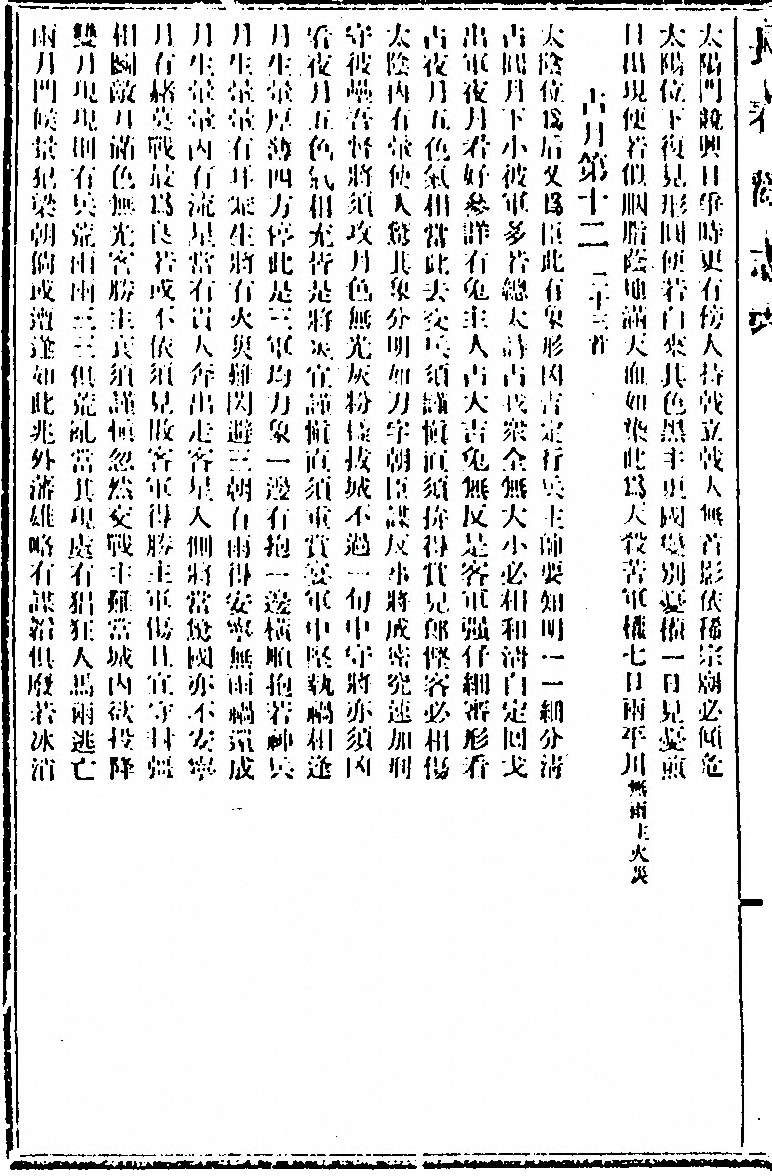 太陽門競興日爭時更有傍人持戟立戟人無首影依稀宗廟必傾危
太陽位下復見形圓便若白來其色黑主更國變別憂懷一日見憂煎
日出現便若似胭脂蔭地滿天血如染此爲天殺苦軍權七日雨平川無雨主火災
占月第十二 二十三首
太陰位爲后又爲臣此有象形凶吉定行兵主帥要知明一一細分淸
占圓月下小彼軍多若總大詩占我衆全無大小必相和淸白定囘戈
出軍夜月看好參詳有兔主人占大吉兔無反是客軍强仔細審形看
占夜月五色氣相當此去交兵須謹愼直須拆得貴兄郞慳客必相傷
太陰內有暈使人驚其象分明如刀字朝臣謀反事將成密究速加刑
守彼壘吾督將須攻月色無光灰粉樣拔城不過一旬中守將亦須凶
看夜月五色氣相充皆是將災宜謹愼直須重賞宴軍中堅執禍相逢
月生暈厚薄四方停此是三軍均力象一邊有抱一邊橫順抱若神兵
月生暈暈有珥來生將有火災難閃避三朝有雨得安寧無雨禍還成
月生暈暈內有流星當有貴人奔出走客星入側將當驚國亦不安寧
月有赭莫戰最爲良若或不依須見敗客軍得勝主軍傷且宜守封疆
相圍敵月滿色無光客勝主衰須謹愼忽然交戰主難當城內欲投降
雙月現現則有兵荒兩兩三三俱荒亂當其現處有猖狂人馬兩逃亡
兩月門候景犯梁朝倘或遭逢如此兆外藩雄略有謀韜俱廢若冰消